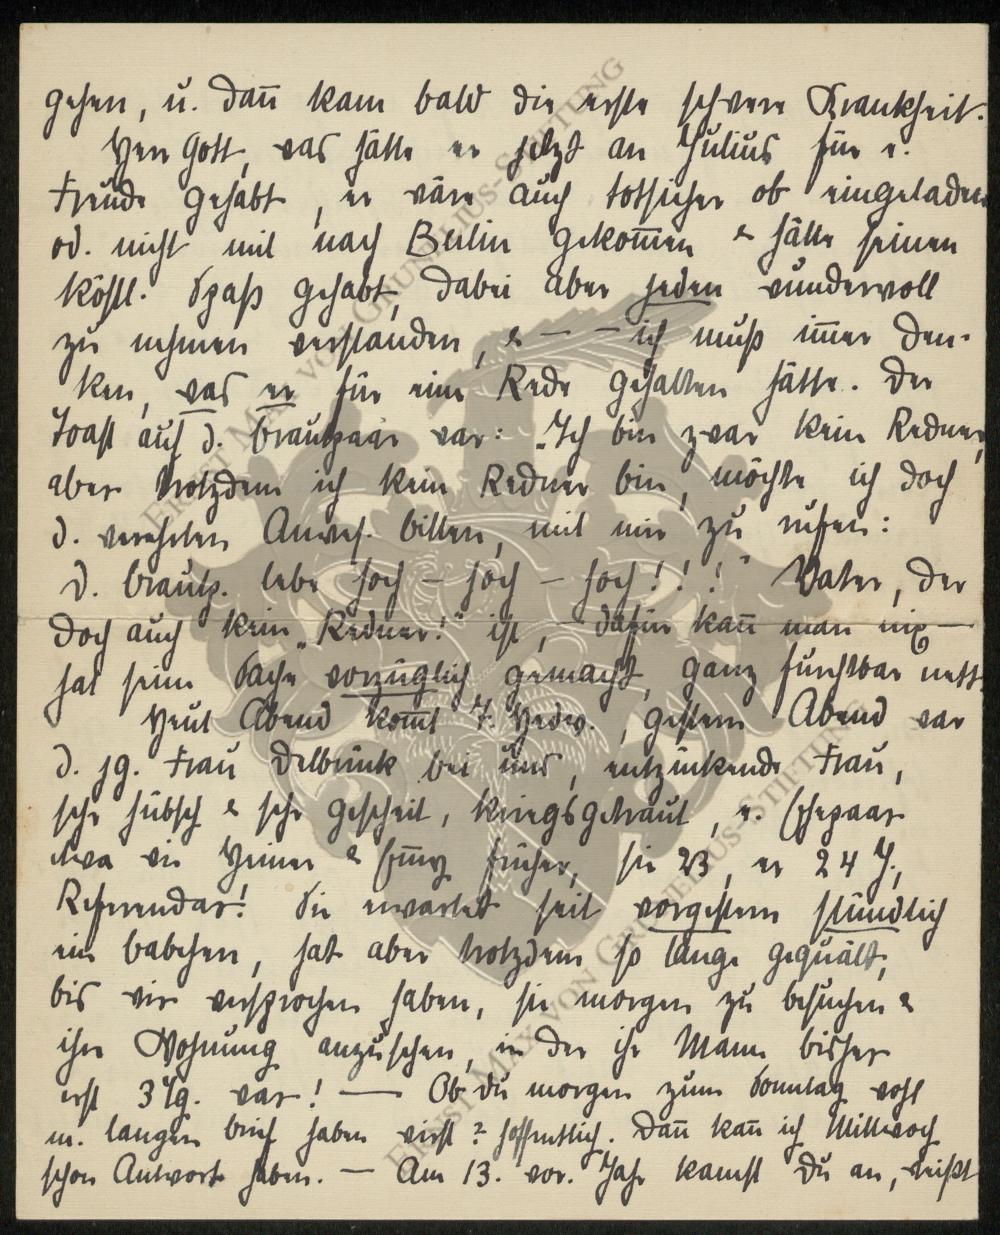 gehen, u. dan̄ kam bald die erste schwere Krankheit.
Herr Gott, was hätte er jetzt an Julius für e.
Freude gehabt, er wäre auch totsicher ob eingeladen
od. nicht mit nach Berlin gekom̄en & hätte seinen
köstl. Spaß gehabt, dabei aber jeden wundervoll
zu nehmen verstanden, & — — ich muß im̄er den-
ken, was er für eine Rede gehalten hätte. Der
Toast auf d. Brautpaar war: „Ich bin zwar kein Redner,
aber trotzdem ich kein Redner bin, möchte ich doch
d. verehrten Anwes. bitten, mit mir zu rufen:
d. Brautp. lebe hoch – hoch – hoch!!!" Vater, der
doch auch kein „Redner!" ist, – dafür kan̄ man nix —
hat seine Sache vorzüglich gemacht, ganz furchtbar nett.
Heut Abend kom̄t T. Hedw., gestern Abend war
d. jg. Frau Delbrück bei uns, entzückende Frau,
sehr hübsch & sehr gescheit, kriegsgetraut, e. Ehepaar
etwa wie Heiner & Em̄y früher, sie 23, er 24 J.,
Referendar! Sie erwartet seit vorgestern stündlich
ein Babchen, hat aber trotzdem so lange gequält,
bis wir versprochen haben, sie morgen zu besuchen &
ihre Wohnung anzusehen, in der ihr Mann bisher
erst 3 Tg. war! — Ob du morgen zum Sonntag wohl
m. langen Brief haben wirst? Hoffentlich. Dan̄ kan̄ ich Mittwoch
schon Antwort haben. — Am 13. vor. Jahr kamst Du an, weißt
ERNST MAX VON GRUNELIUS-STIFTUNG
ERNST MAX VON GRUNELIUS-STIFTUNG